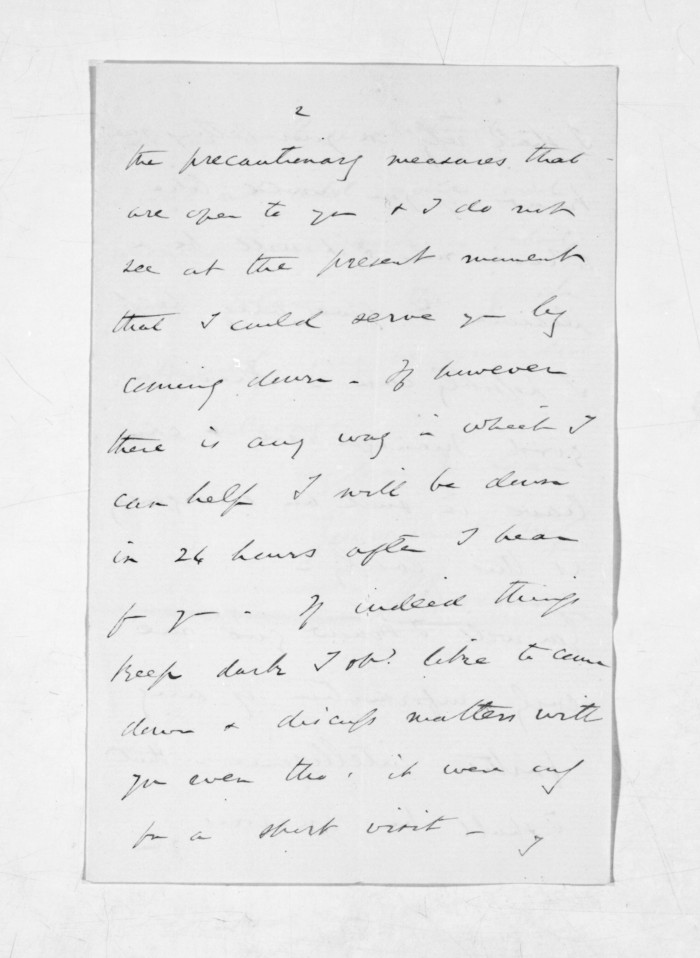 2
the precautionary measures that
are open to you & I do not
see at the present moment
that I could serve you by
coming down - If however
there is any way in which I
can help I will be down
in 24 hours after I hear
fr you - If indeed things
keep dark I shd. like to come
down & discuss matters with
you even tho' it were only
for a short visit -